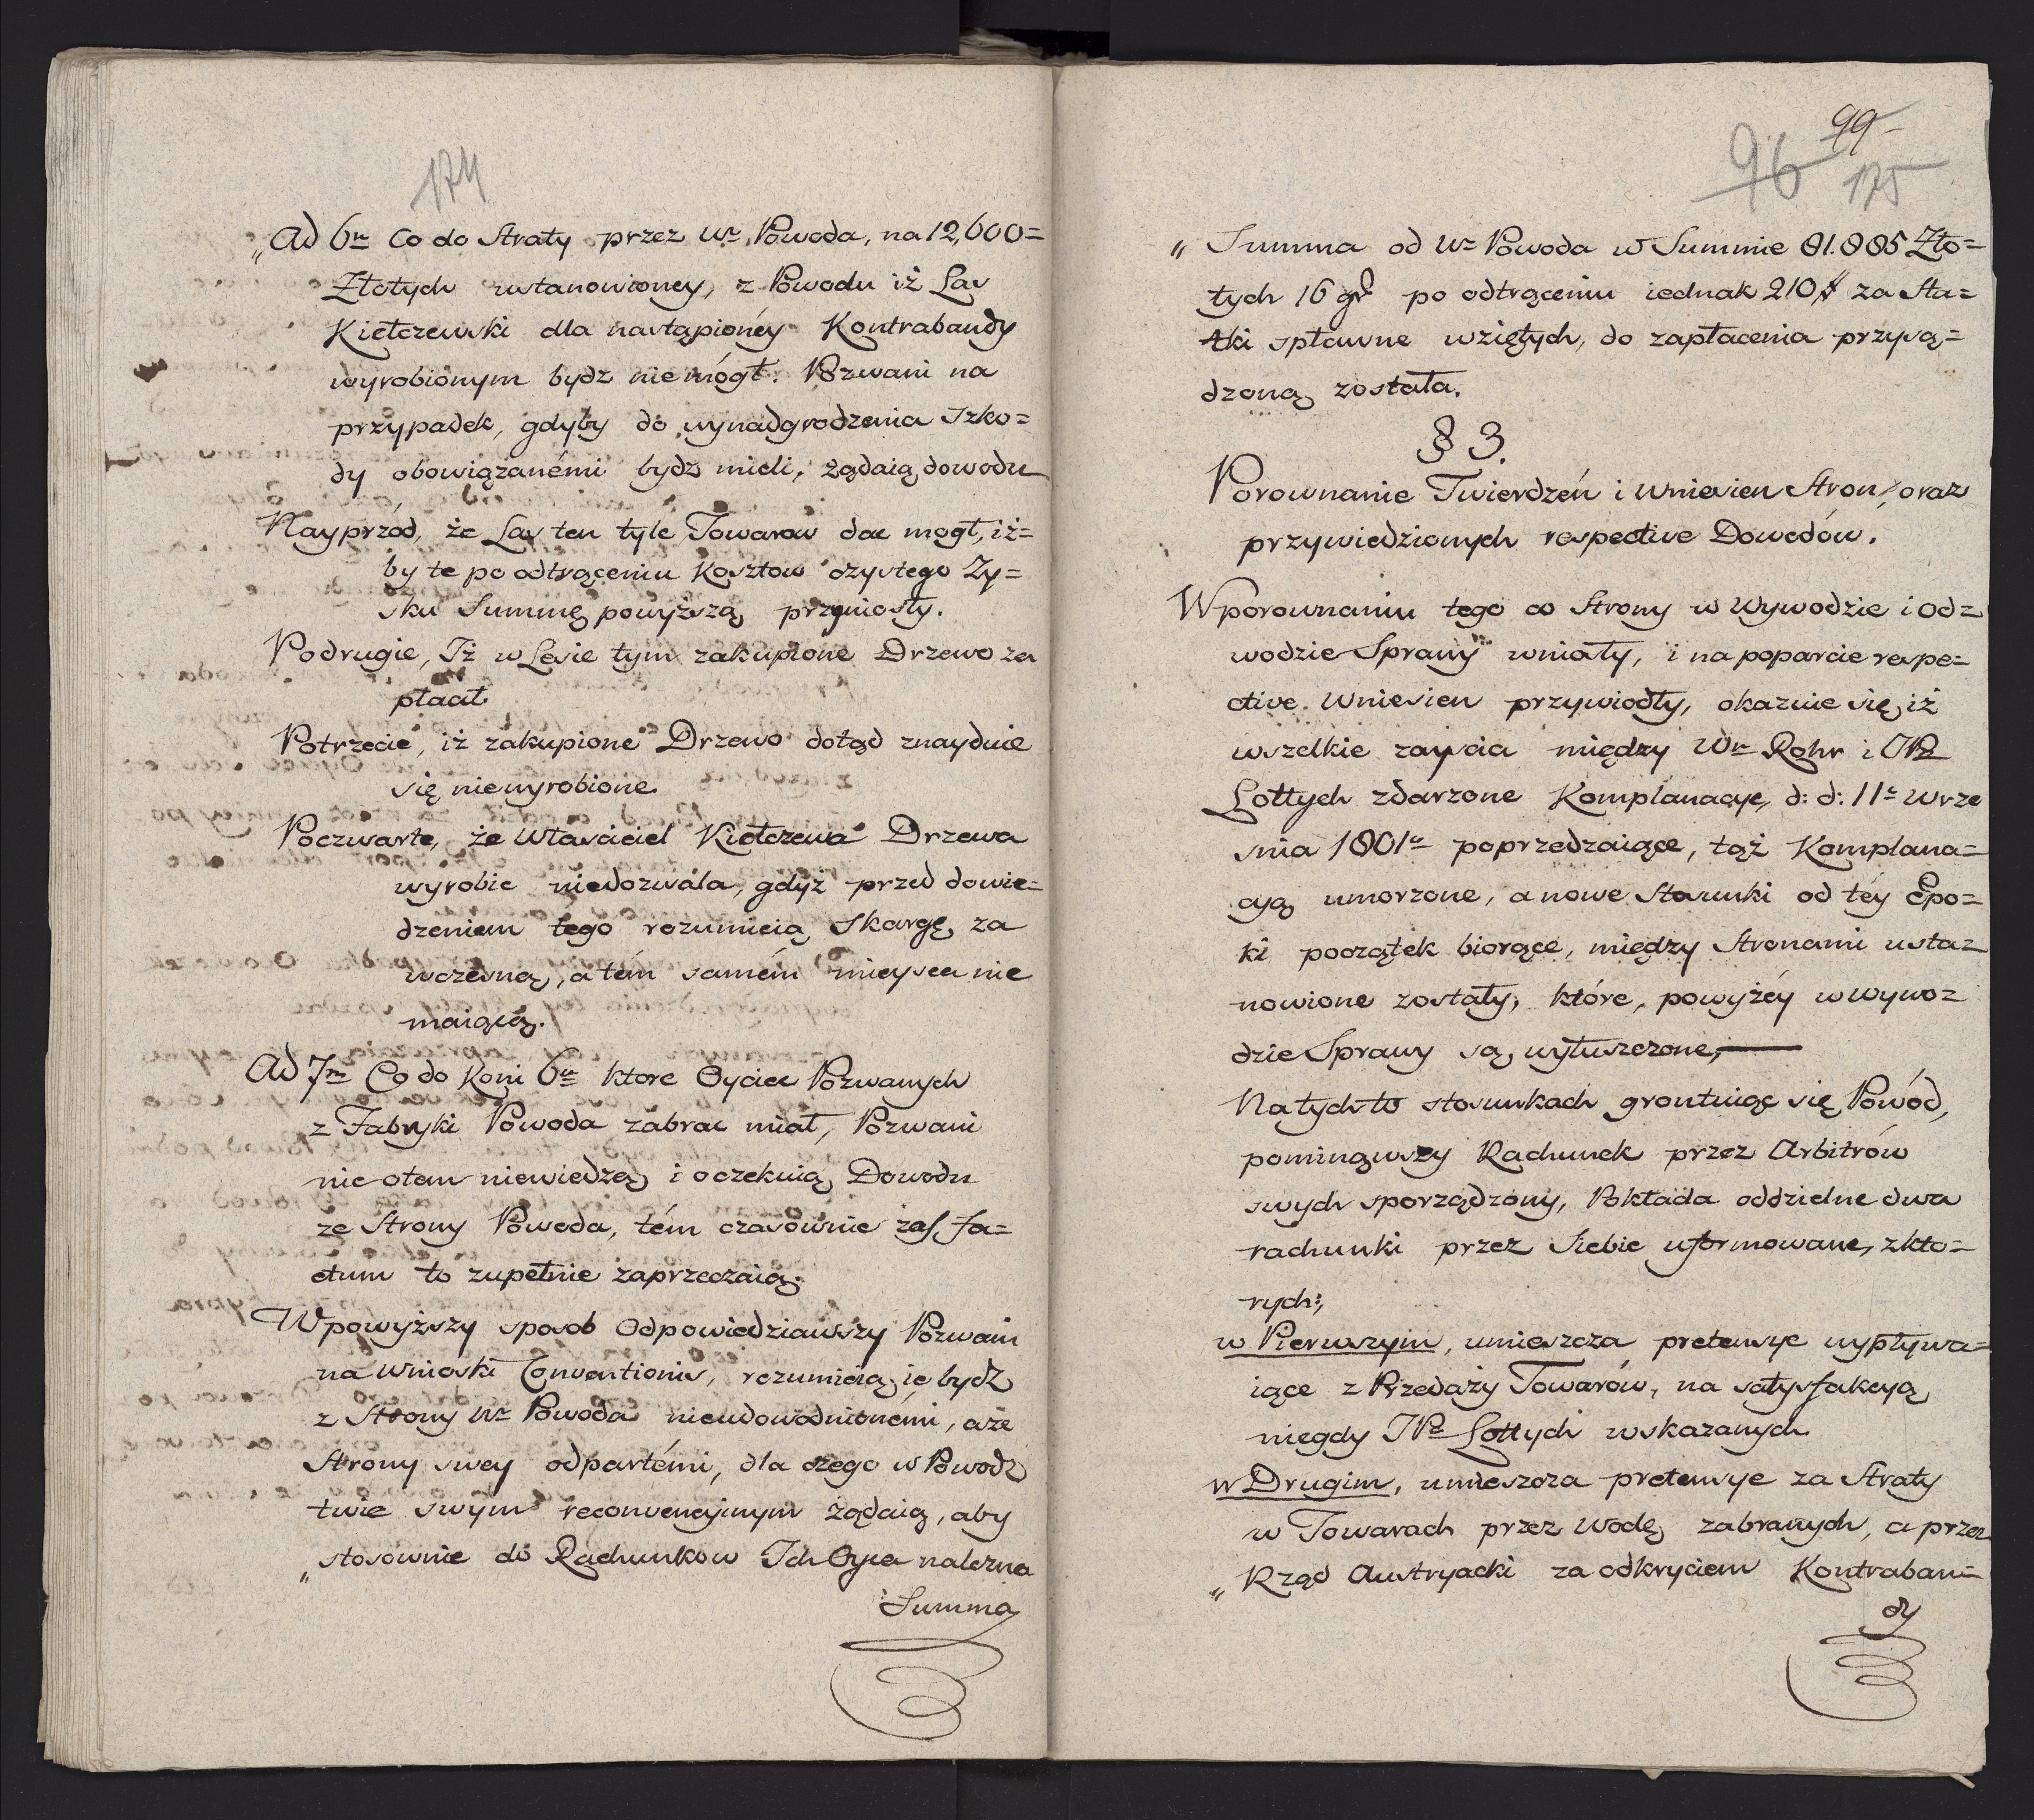 174
„Ad 6m Co do Straty przez Wo Powoda, na 12,600=
Złotych ustanowioney, z Powodu iż Las
Kiełczewski dla nastąpionéy Kontrabandy
wyrobionym bydz niemógł. Pozwani na
przypadek, gdyby do wynadgrodzenia szko=
dy obowiązanémi bydz mieli, żądaią dowodu
Nayprzód, że Las ten tyle Towarow dac mogł, iż=
by te po odtrąceniu Kosztow czystego Zy=
sku Summę powyższą przyniosły.
Podrugie, Iż w Lesie tym zakupione Drzewo za
płacił
Potrzecie, iż zakupione Drzewo dotąd znayduie
się niewyrobione.
Poczwarte, że Własciciel Kiełczewa Drzewa
wyrobic niedozwala, gdyż przed dowie=
dzeniem tego rozumieią Skargę za
wczesną, a tém samém mieysca nie
maiącą.
Ad 7m Co do Koni 6u ktore Oyciec Pozwanych
z Fabryki Powoda zabrac miał, Pozwani
nic otem niewiedzą i oczekuią Dowodu
ze Strony Powoda, tém czasownie zaś Fa=
ctum to zupełnie zaprzeczaią.
W powyższy sposob Odpowiedziawszy Pozwani
na Wnioski Conventionis, rozumieią ie bydz
z Strony Wo Powoda nieudowodnionémi, a ze
Strony swey odpartémi, dla czego w Powodz
twie swym reconvencyinym żądaią, aby
„stosownie do Rachunkow Ich Oyca nalezna
Summa
99
96 175
„ Summa od Wo Powoda w Summie 81.885 Zło=
tych 16 gr po odtrąceniu iednak 210 # za Sta=
tki spławne wziętych, do zapłacenia przysą=
dzoną została.
§ 3.
Porownanie Twierdzeń i Wniesien Stron, oraz
przywiedzionych respective Dowodów.
W porownaniu tego co Strony w Wywodzie i od=
wodzie Sprawy wniosły, i na poparcie respe=
ctive Wniesien przywiodły, okazuie się, iż
wszelkie zayscia między Wm Rohr i JPP
Lottych zdarzone Komplanacye, d: d: 11o Wrze
snia 1801o poprzedzaiące, tąż Komplana=
cyą umorzone, a nowe Stosunki od téy Epo=
ki początek biorące, między Stronami usta=
nowione zostały, które, powyżéy w wywo=
dzie Sprawy są wyłuszczone,
Na tych to stosunkach grontuiąc się Powód,
pominąwszy Rachunek przez Arbitrów
swych sporządzony, Pokłada oddzielne dwa
rachunki przez Siebie uformowane, z kto=
rych:,
w Pierwszym, umieszcza pretensye wypływa=
iące z Przedaży Towarów, na satysfakcyą
niegdy JPo Lottych wskazanych
w Drugim, umieszcza pretensye za Straty
w Towarach przez Wodę zabranych, a przez
„ Rząd Austryacki za odkryciem Kontraban=
dy